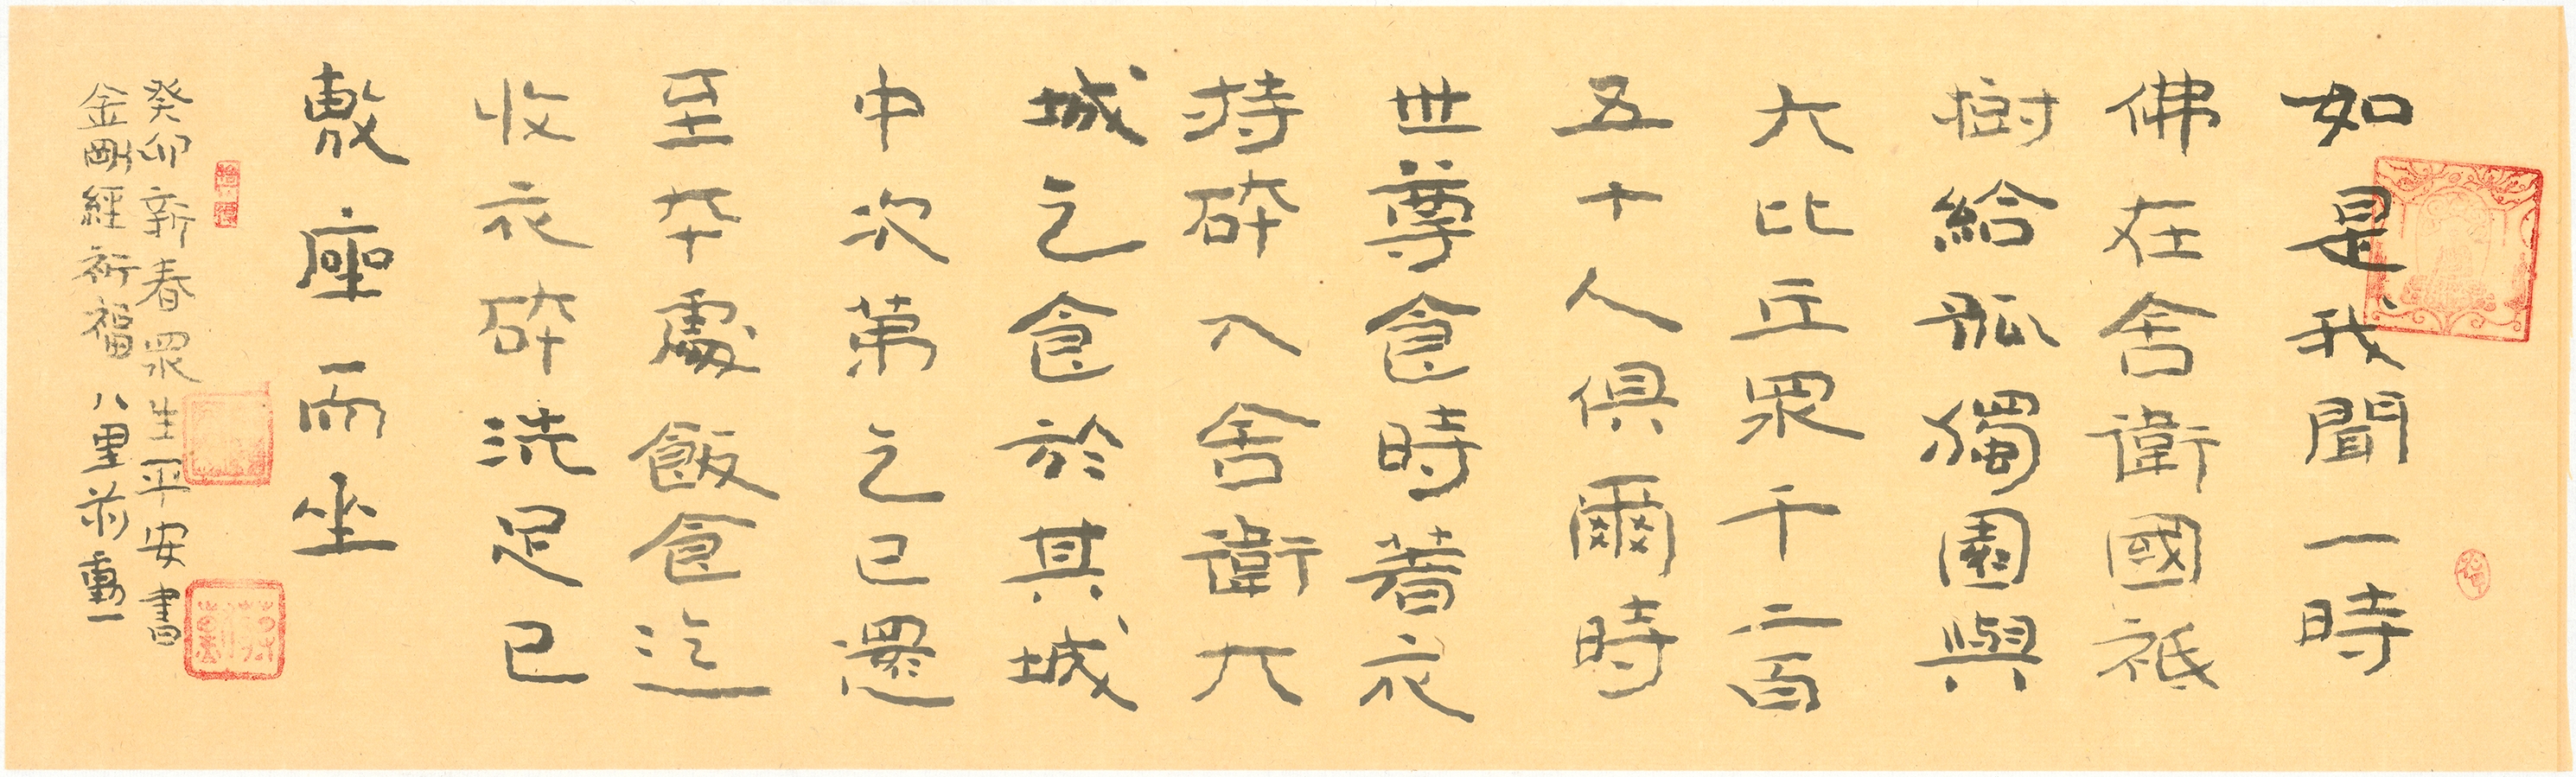 如是我聞一時
佛在舍衛國祇
樹給孤獨園與
大比丘眾千二百
五十人俱爾時
世尊食時著衣
持砵入舍衛大
城乞食於其城
中次第乞已還
至本處飯食訖
收衣砵洗足已
敷座而坐
癸卯新春眾生平安書
金剛經祈福 八里